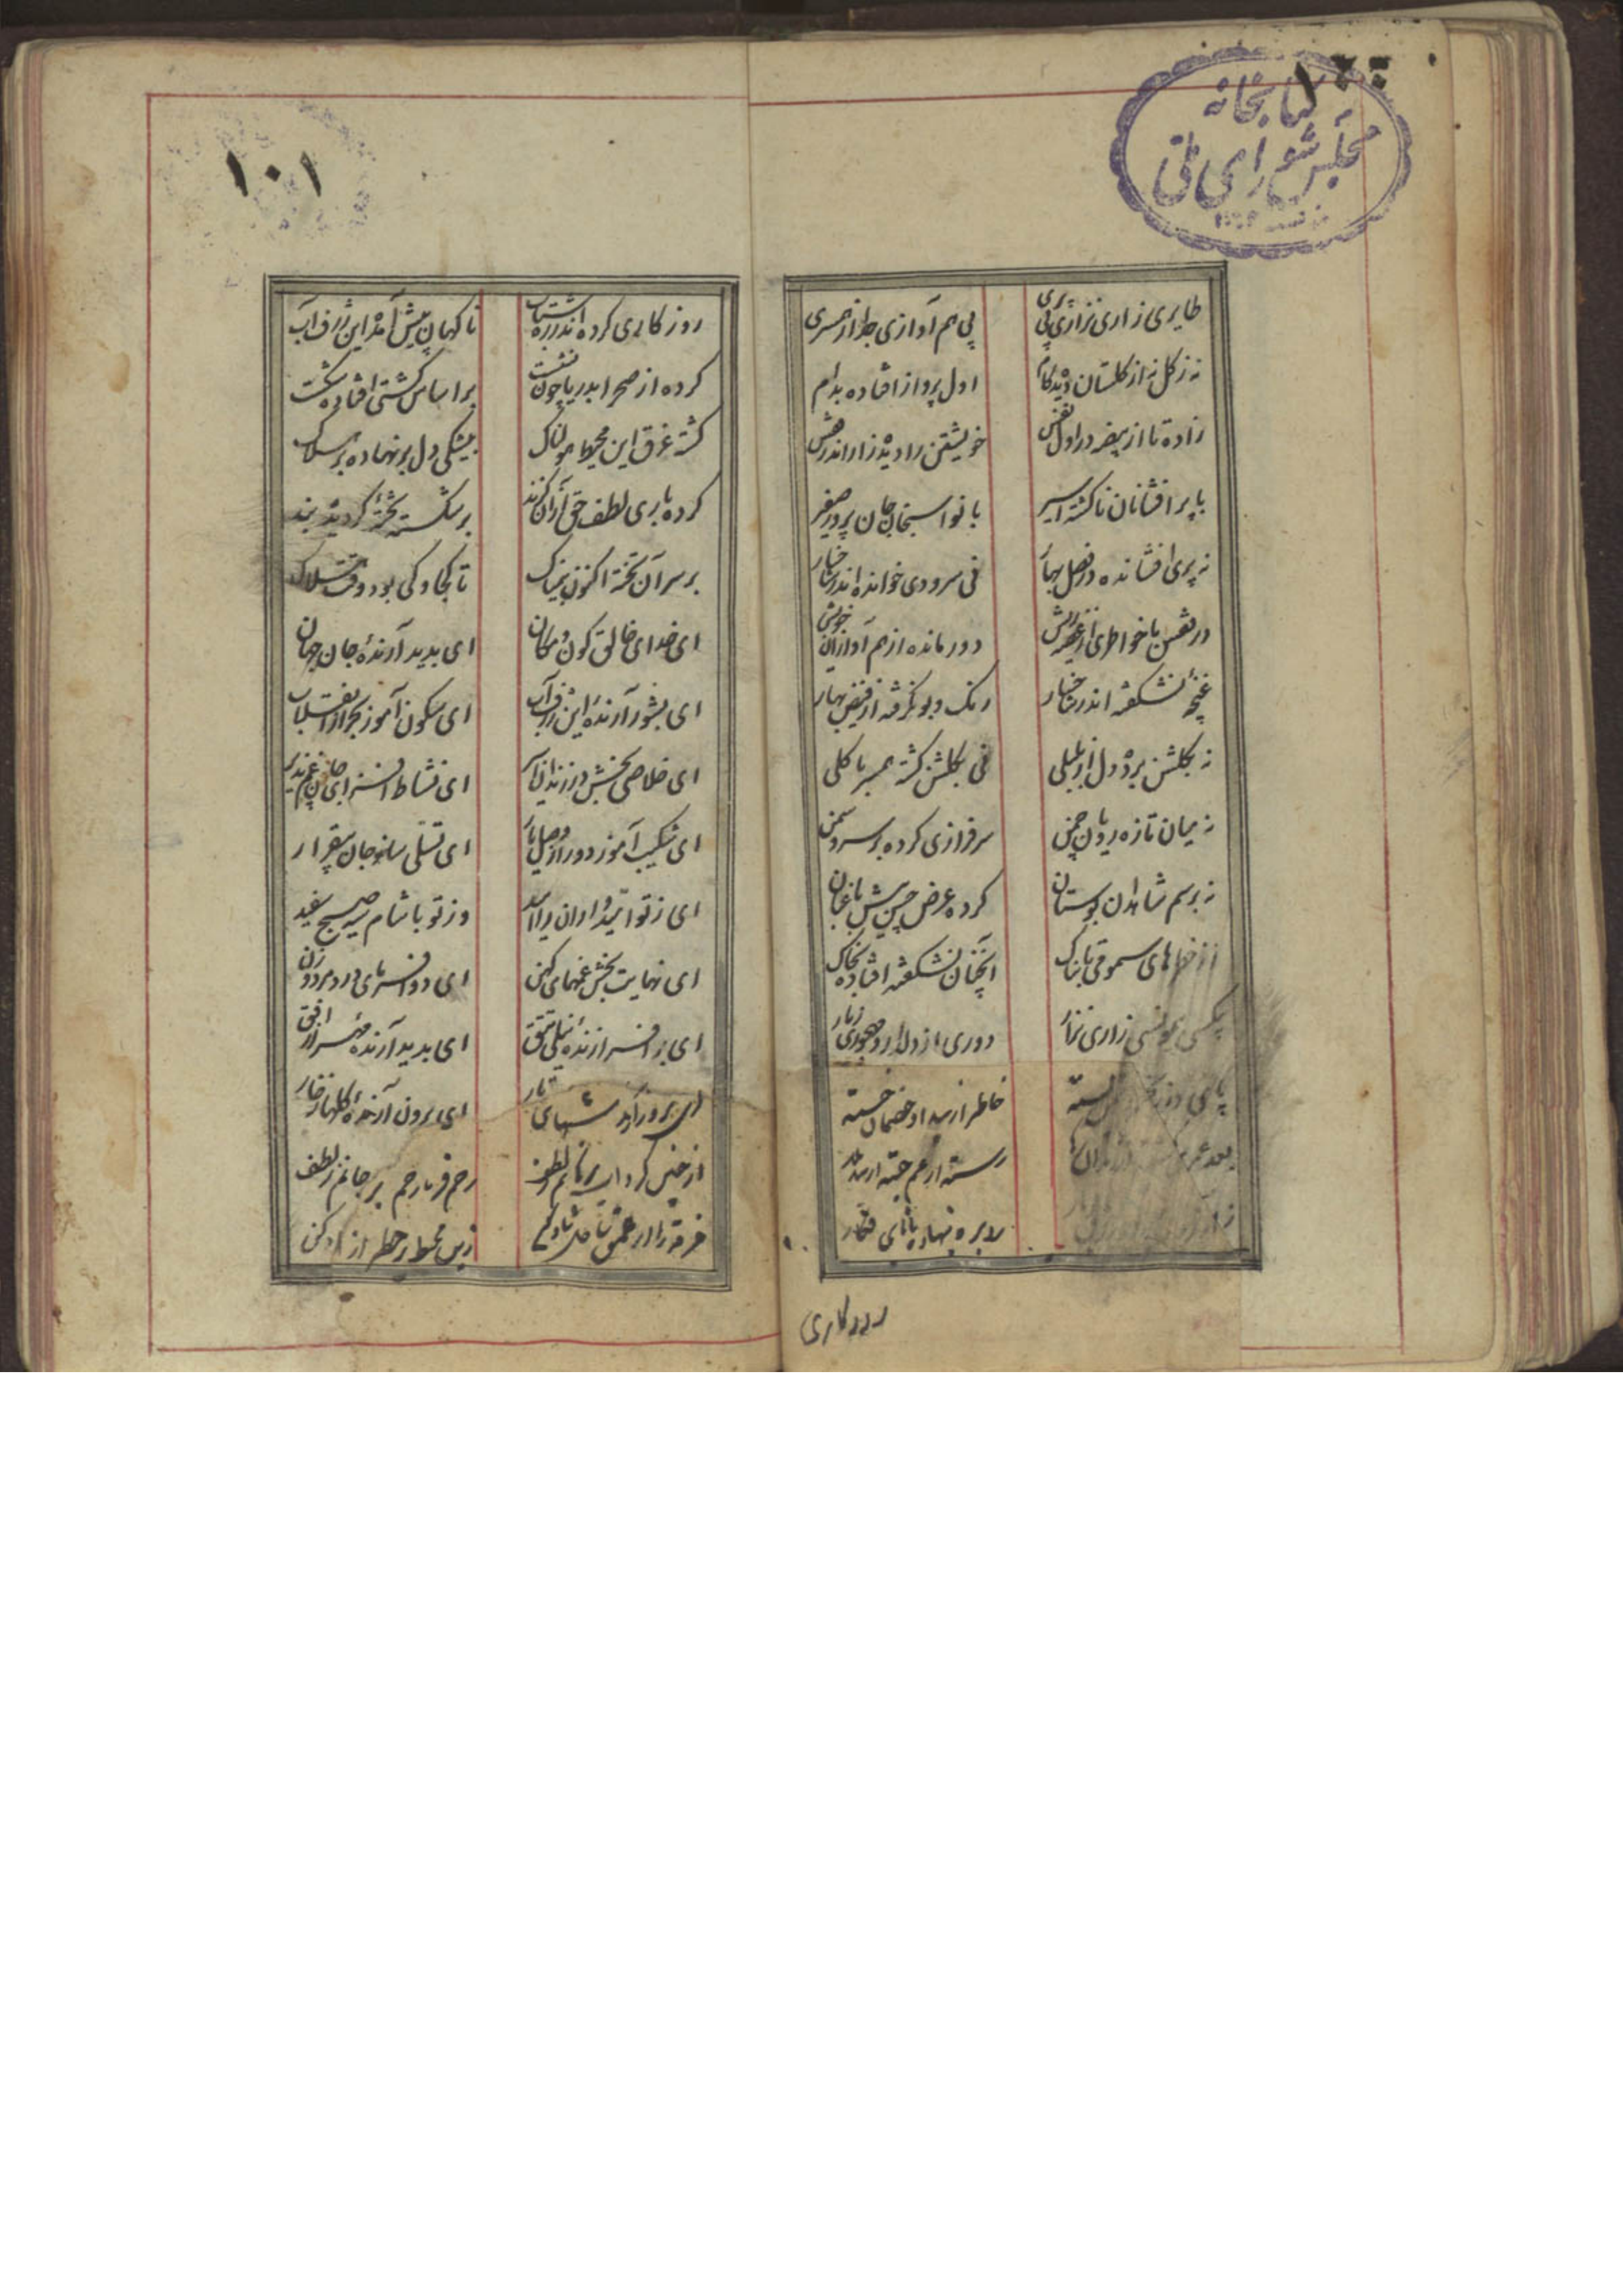 کتابخانه
مجلس شورای ملی
طایری زاری نزاری بی پری
بی هم آوازی جدا از همسری
نه ز گل نه از گلستان دیده کام
اول پرواز افتاده بدام
زاده تا از بیضه در اول نفس
خویشتن را دیده زار اندر قفس
با پر افشانان ناگشته اسیر
با نوا سنجان جان پرور صفیر
نه پری افشانده در فصل بهار
نی سرودی خوانده اندر شاخسار
در قفس با خواطری از غصه ریش
دور مانده از هم آوازان خویش
غنچهٔ نشکفته اندر شاخسار
رنک و بو نگرفته از فیض بهار
نه بگلشن برده دل از بلبلی
نی بگلشن گشته همسر با گلی
نه میان تازه رویان چمن
سرفرازی کرده بر سرو و سمن
نه برسم شاهدان بوستان
کرده عرض حسن پیش باغبان
سمومی تابناک
آنچنان نشکفته افتاده بخاک
بیکسی بی مونسی زاری نزار
دوری از دلدار و مهجوری ز یار
پای
خاطر از بیداد خصمان خسته
بعد عمری
رسته از غم جسته از بند
رو بره بنهاده با پای فکار
روزکاری
۱۰۱
روزکاری کرده اندر ره شتاب
ناکهان پیش آمد این ژرف آب
کرده از صحرا بدریا چون نشست
بر اساس کشتی افتاده شکست
گشته غرق این محیط هولناک
بیشکی دل بر نهاده بر هلاک
کرده یاری لطف حق از آن گزند
بر شکسته تختهٔ گردیده بند
بر سر آن تخته اکنون بیمناک
تا کجا و کی بود وقت هلاک
ای خدای خالق کون و مکان
ای پدید آرندهٔ جان و جهان
ای بشور آرندهٔ این ژرف آب
ای سکون آموز بحر از انقلاب
ای خلاصی بخش در زندان
ای نشاط افزای جان غم پذیر
ای شکیب آموز دور از وصل یار
ای تسلی ساز جان بیقرار
ای ز تو امیدواران را امید
وز تو با شام سیه صبح سفید
ای نهایت بخش غمهای کهن
ای دوا فرمای درد مرد و زن
ای بر افرازندهٔ نیلی تتق
ای پدید آرندهٔ مهر از افق
ای بروز آرنده شبهای تار
ای برون آرندهٔ گلها ز خار
از چنین گرداب برهانم ز لطف
رحم فرما رحم بر جانم ز لطف
زین محیط پر خطر آزاد کن